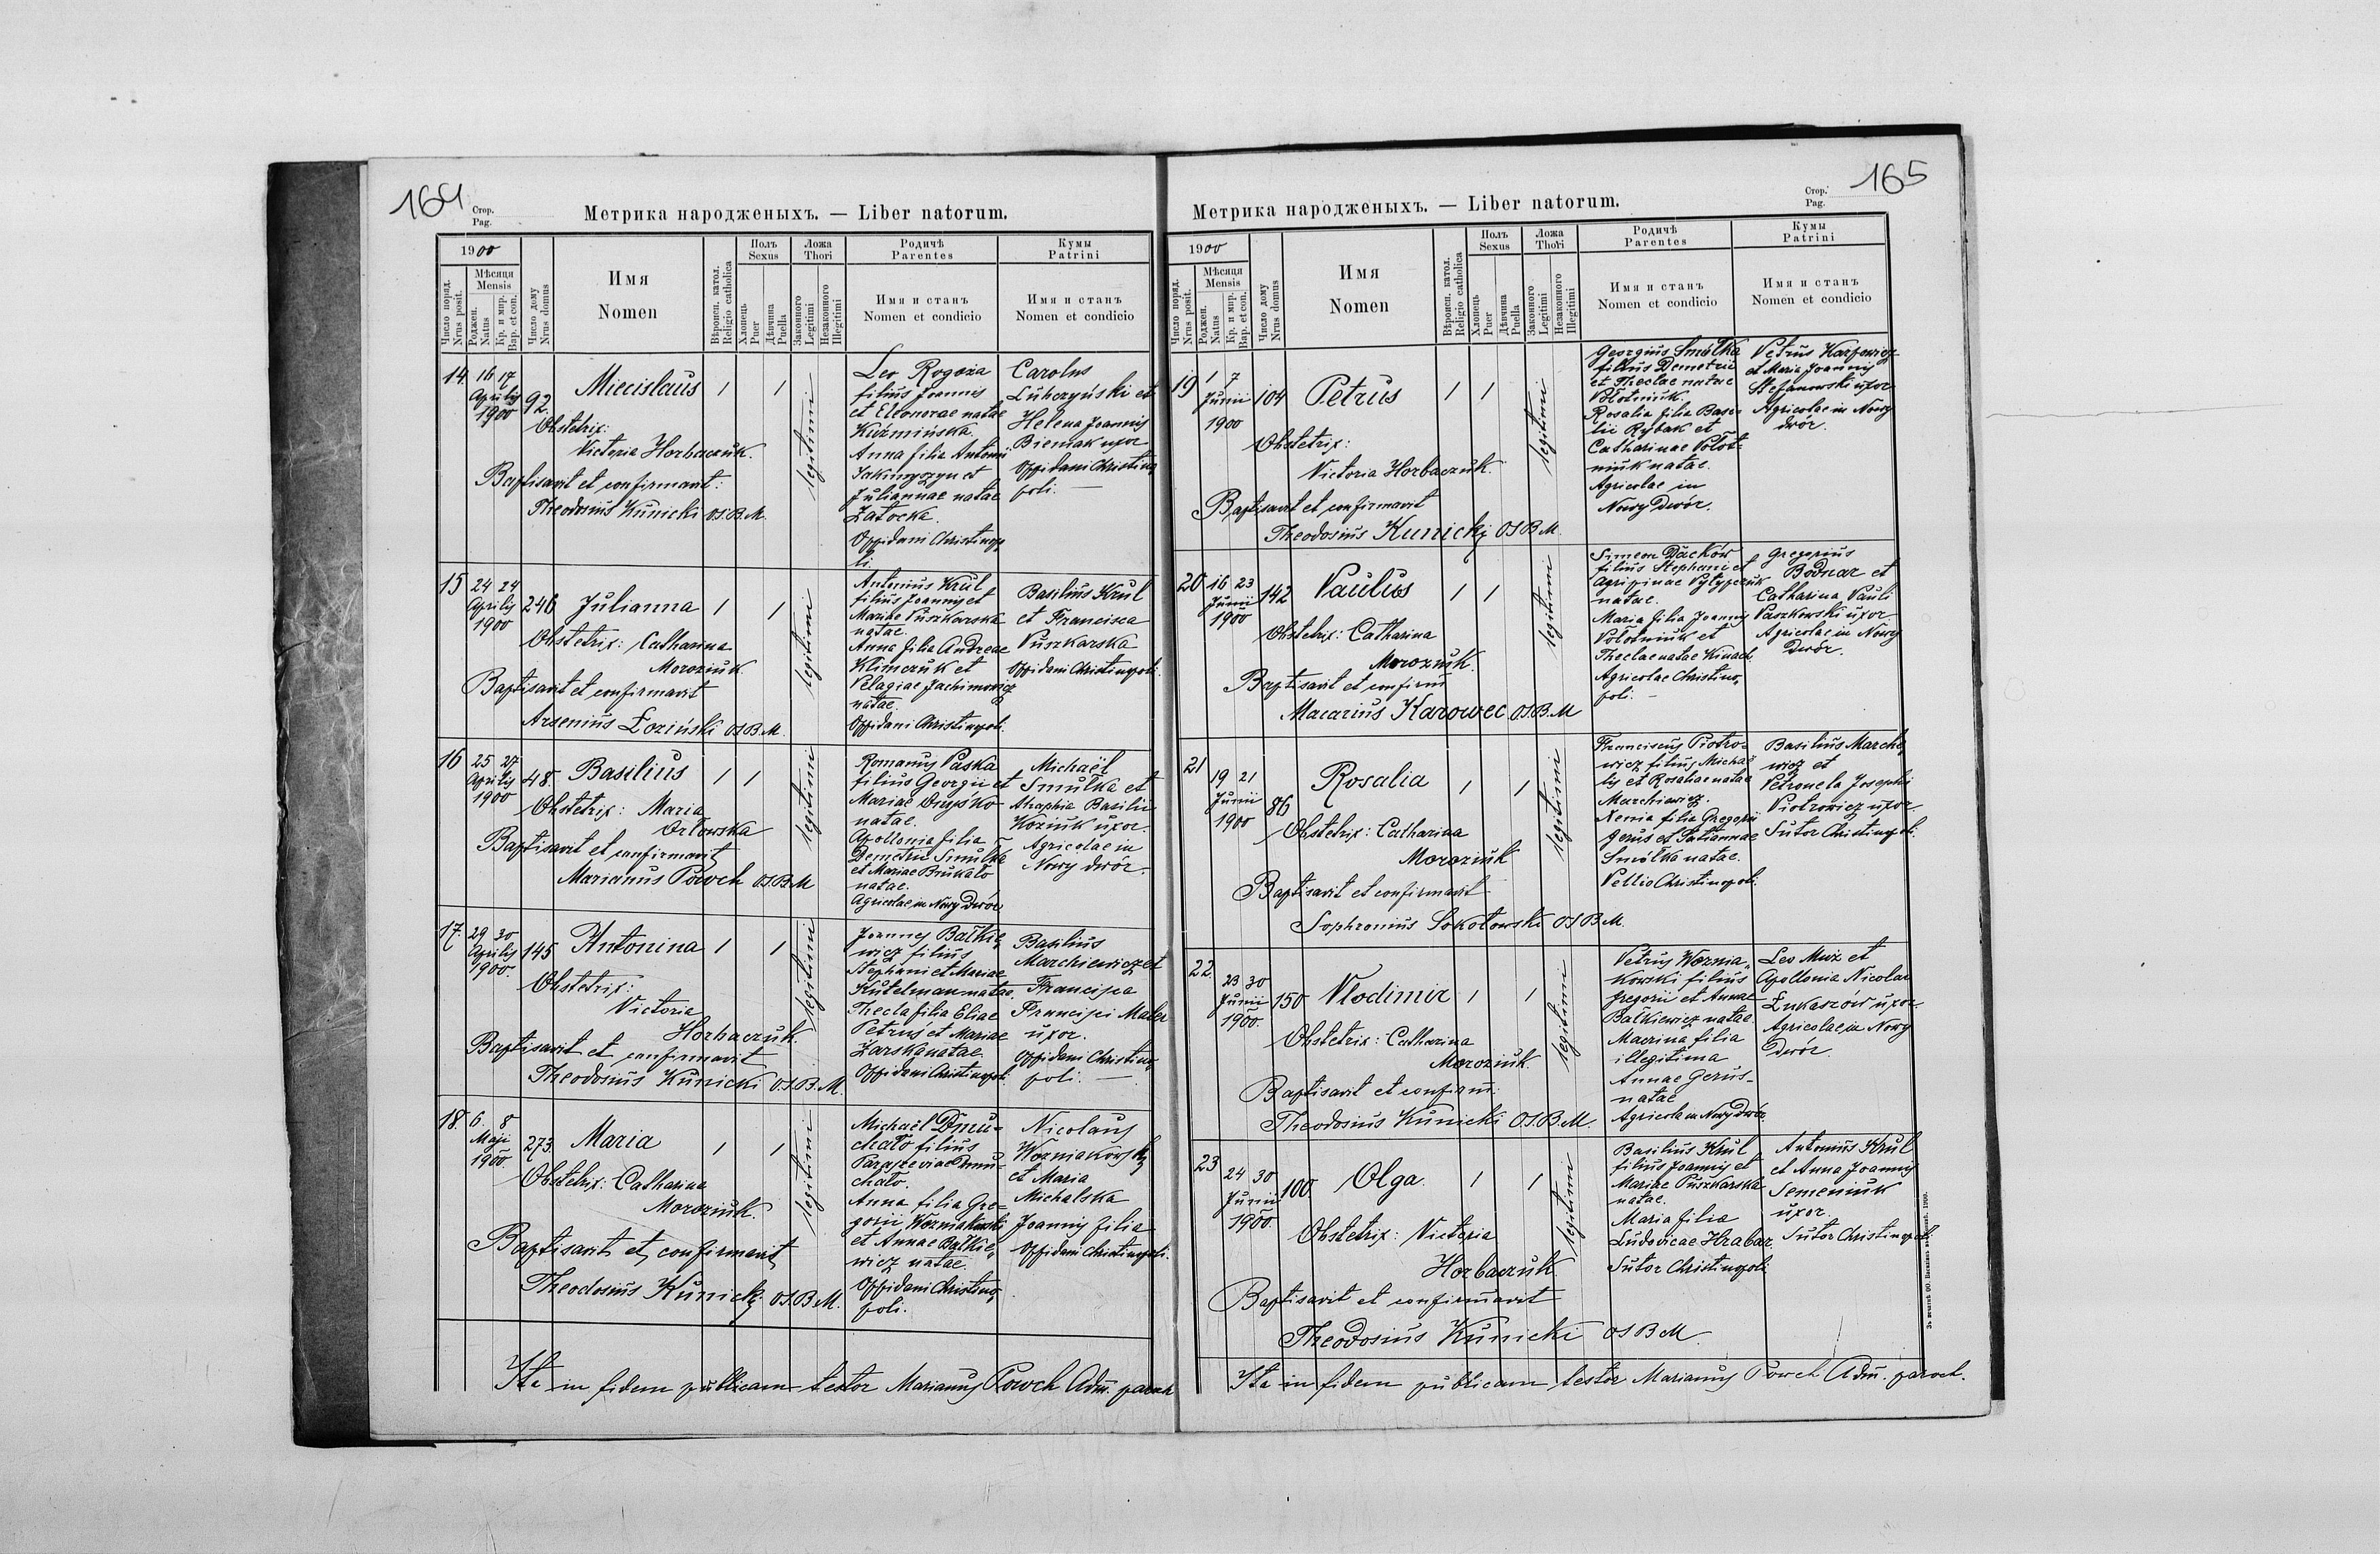 164
Стор.
Pag.
Метрика народженыхъ. — Liber natorum.
1900
Число поряд.
Nrus posit.
Мѣсяця
Mensis
Роджен.
Natus
Кр. и мир.
Bap. et con.
Число дому
Nrus domus
Имя
Nomen
Вѣроисп. катол.
Religio catholica
Полъ
Sexus
Хлопець
Puer
Дѣвчина
Puella
Ложа
Thori
Законного
Legitimi
Незаконного
Illegitimi
Родичѣ
Parentes
Имя и станъ
Nomen et condicio
Кумы
Patrini
Имя и станъ
Nomen et condicio
14. 16 17
Aprilis
1900
92.
Miecislaus
Obstetrix:
Victoria Horbaczuk.
Baptisavit et confirmavit:
Theodosius Kunicki O.S.B.M.
legitimi
Leo Rogoza
filius Joannis
et Eleonorae natae
Kuźmińska.
Anna filia Antonii
et
Juliannae natae
Zatocka.
Oppidani Christinopo
li.
Carolus
Luhczyński et
Helena Joannis
Bieniak uxor
Oppidani Christino
poli. —
15 24 24
Aprilis
1900
246
Julianna
Obstetrix: Catharina
Moroziuk.
Baptisavit et confirmavit
Arsenius Łoziński OSBM.
legitimi
Antonius Krul
filius Joannis et
Mariae Puszkarska
natae.
Anna filia Andreae
Klimczuk et
Pelagiae Jachimowicz
natae.
Oppidani Christinopoli.
Basilius Krul
et Francisca
Puszkarska
Oppidani Christinopoli.
16 25 27
Aprilis
1900
48.
Basilius
Obstetrix: Maria
Orłowska
Baptisavit et confirmavit
Marianus Powch O.S.B.M
legitimi
Romanus Paska
filius Georgii et
Mariae
natae.
Apollonia filia
Demetrii Smułka
et Mariae Brukało
natae.
Agricolae in Nowy Dwór
Michaël
Smułka et
Basilii
Koziuk uxor.
Agricolae in
Nowy dwór.
17. 29 30
Aprilis
1900.
145
Antonina
Obstetrix:
Victoria
Horbaczuk.
Baptisavit et confirmavit
Theodosius Kunicki O.S.B.M.
legitimi
Joannes Bałkie
wicz filius
Stephani et Mariae
Kutelman natae.
Thecla filia Eliae
Petruś et Mariae
Zarska natae.
Oppidani Christinopoli
Basilius
Marchiewicz et
Francisca
Francisci Maler
uxor.
Oppidani Christino
poli. —
18. 6. 8
Maji
1900.
273.
Maria
Obstetrix: Catharina
Moroziuk.
Baptisavit et confirmavit
Theodosius Kunicki O.S.B.M.
legitimi
Michaël Dmu-
chało filius
Paraszeviae Dmu-
chało.
Anna filia Gre-
gorii Wozniakowski
et Annae Bałkie
wicz natae.
Oppidani Christino
poli.
Nicolaus
Wozniakowski
et Maria
Michalska
Joannis filia
Oppidani Christinopoli.
Ita in fidem publicam testor Marianus Powch Adm. paroch
165
Стор.
Pag.
Метрика народженыхъ. — Liber natorum.
1900
Число поряд.
Nrus posit.
Мѣсяця
Mensis
Роджен.
Natus
Кр. и мир.
Bap. et con.
Число дому
Nrus domus
Имя
Nomen
Вѣроисп. катол.
Religio catholica
Полъ
Sexus
Хлопець
Puer
Дѣвчина
Puella
Ложа
Thori
Законного
Legitimi
Незаконного
Illegitimi
Родичѣ
Parentes
Имя и станъ
Nomen et condicio
Кумы
Patrini
Имя и станъ
Nomen et condicio
19 1 7
Junii
1900
104
Petrus
Obstetrix:
Victoria Horbaczuk.
Baptisavit et confirmavit
Theodosius Kunicki OSBM.
legitimi
Georgius Smułka
filius Demetrii
et Theclae natae
Połotniuk.
Rosalia filia Basi-
lii Rybak et
Catharinae Połot-
niuk natae.
Agricolae in
Nowy Dwór.
Petrus Karpowicz
et Maria Joannis
Stefanowski uxor
Agricolae in Nowy
dwór.
20 16 23
Junii
1900
142
Paulus
Obstetrix: Catharina
Moroziuk.
Baptisavit et confirm
Macarius Karowec O.S.B.M
legitimi
Simeon Daćków
filius Stephani et
Agripinae Pylypczuk
natae.
Maria filia Joannis
Połotniuk et
Theclae natae Kinach
Agricolae Christino
poli. —
Gregorius
Bodnar et
Catharina Pauli
Paszkowski uxor.
Agricolae in Nowy
Dwór.
21 19 21
Junii
1900
86
Rosalia
Obstetrix: Catharina
Moroziuk
Baptisavit et confirmavit
Sophronius Sokołowski OSBM.
legitimi
Franciscus Piotro-
wicz filius Michaë
lis et Rosaliae natae
Marchiewicz.
Xenia filia Gregorii
Gerus et Tatiannae
Smółka natae.
Pellio Christinopoli.
Basilius Marchie
wicz et
Petronela Josephi
Piotrowicz uxor.
Sutor Christinopoli.
22 23 30
Junii
1900.
150
Vlodimir
Obstetrix: Catharina
Moroziuk.
Baptisavit et confirm.
Theodosius Kunicki O.S.B.M.
legitimi
Petrus Woznia-
kowski filius
Gregorii et Annae
Bałkiewicz natae.
Macrina filia
illegitima
Annae Gerus-
natae
Agricola in Nowy Dwór.
Leo Muz et
Apollonia Nicolai
Łukaszów uxor
Agricolae in Nowy
Dwór.
23 24 30
Junii
1900.
100
Olga.
Obstetrix: Victoria
Horbaczuk
Baptisavit et confirmavit
Theodosius Kunicki OSBM.
legitimi
Basilius Krul
filius Joannis et
Mariae Puszkarska
natae.
Maria filia
Ludovicae Hrabar.
Sutor Christinopoli
Antonius Krul
et Anna Joannis
Semeniuk
uxor.
Sutor Christinopoli
Ita in fidem publicam testor Marianus Powch Adm. paroch.